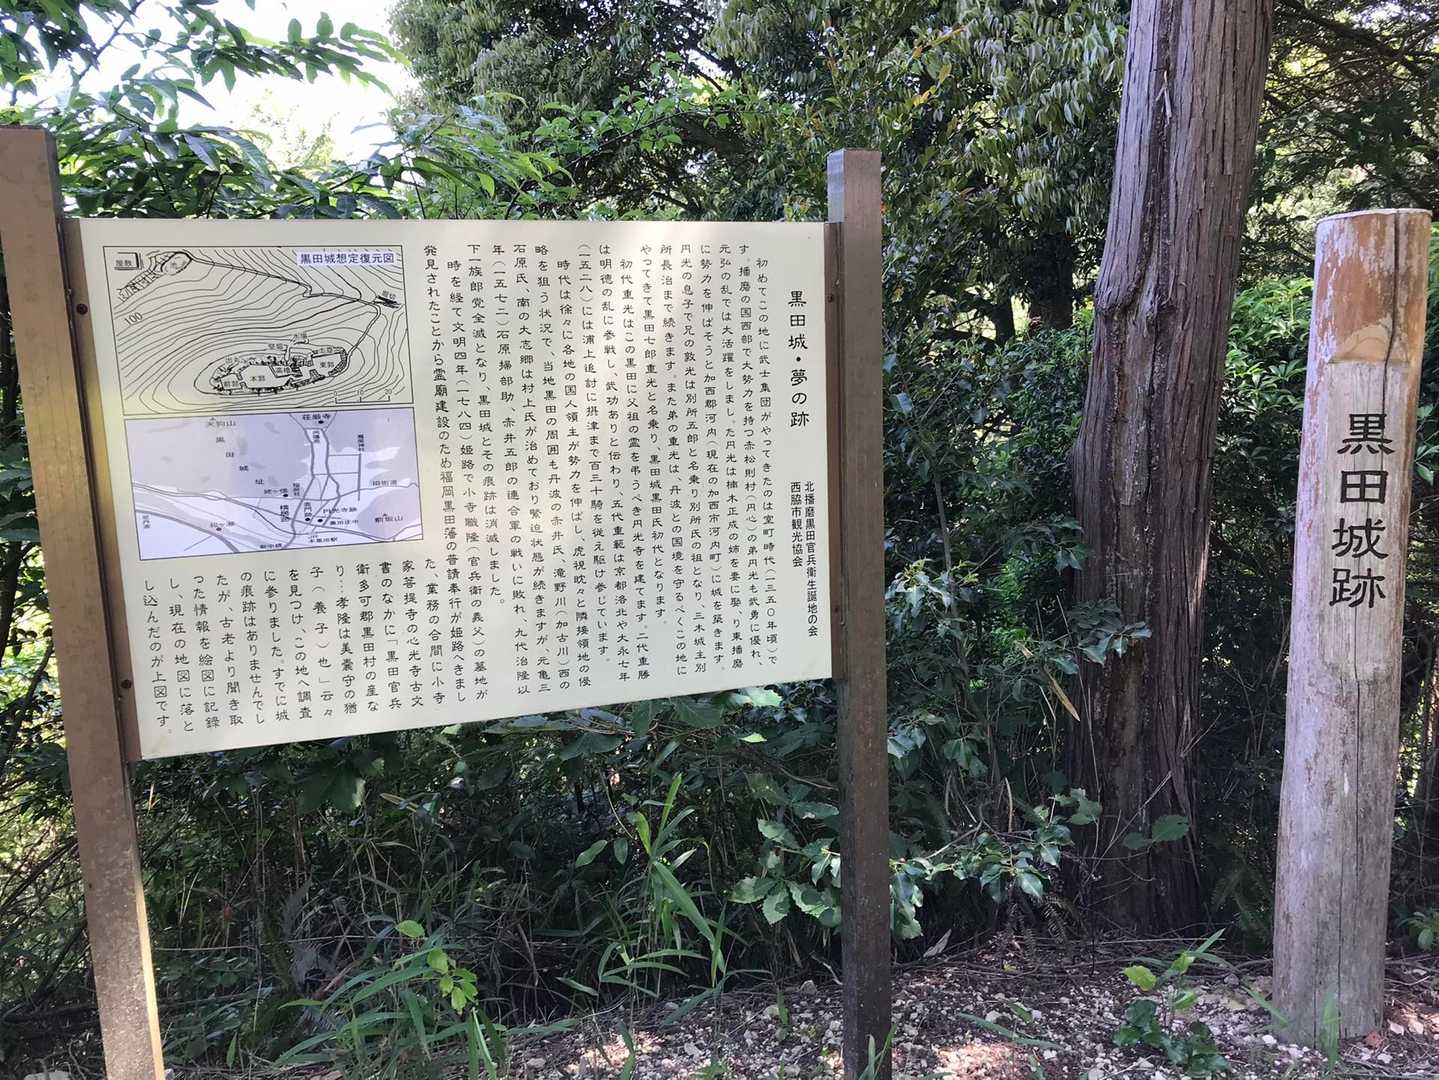 黒田城・夢の跡
北播磨黒田官兵衛生誕地の会
西脇市観光協会
初めてこの地に武士集団がやってきたのは室町時代(一三五〇年頃)で
す。播磨の国西部で大勢力を持つ赤松則村(円心)の弟円光も武勇に優れ、
元弘の乱では大活躍をしました。円光は楠木正成の姉を妻に娶り、東播磨
に勢力を伸ばそうと加西郡河内(現在の加西市河内町)に城を築きます。
円光の息子で兄の敦光は別所五郎と名乗り別所氏の祖となり、三木城主別
所長治まで続きます。また弟の重光は、丹波との国境を守るべくこの地に
やってきて黒田七郎重光と名乗り、黒田城黒田氏初代となります。
初代重光はこの黒田に父祖の霊を弔うべき円光寺を建てます。二代重勝
は明徳の乱に参戦し、武功ありと伝わり、五代重範は京都洛北や大永七年
(一五二八)には浦上追討に摂津まで百三十騎を従え駆け参じています。
時代は徐々に各地の国人領主が勢力を伸ばし、虎視眈々と隣接領地の侵
略を狙う状況で、当地黒田の周囲も丹波の赤井氏、滝野川(加古川)西の
石原氏、南の大志郷は村上氏が治めており緊迫状態が続きますが、元亀三
年(一五七二)石原掃部助、赤井五郎の連合軍の戦いに敗れ、九代治隆以
下一族郎党全滅となり、黒田城とその痕跡は消滅しました。
時を経て文明四年(一七八四)姫路で小寺職隆(官兵衛の義父)の墓地が
発見されたことから霊廟建設のため福岡黒田藩の普請奉行が姫路へきまし
た、業務の合間に小寺
家菩提寺の心光寺古文
書のなかに「黒田官兵
衛多可郡黒田村の産な
り…孝隆は美嚢守の猶
子(養子)也」云々
を見つけ、この地へ調査
に参りました。すでに城
の痕跡はありませんでし
たが、古老より聞き取
った情報を絵図に記録
し、現在の地図に落と
し込んだのが上図です。
黒田城想定復元図
屋敷
池
堀切
100
水場
出丸
前郭
本郭
高櫓
東郭
荘厳寺
天狗山
黒
田
城
址
姥が懐
構居跡
円光寺跡
黒田庄中
本黒田駅
前坂山
旧街道
黒田城跡